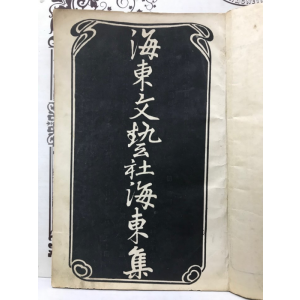 海東文藝社海東集